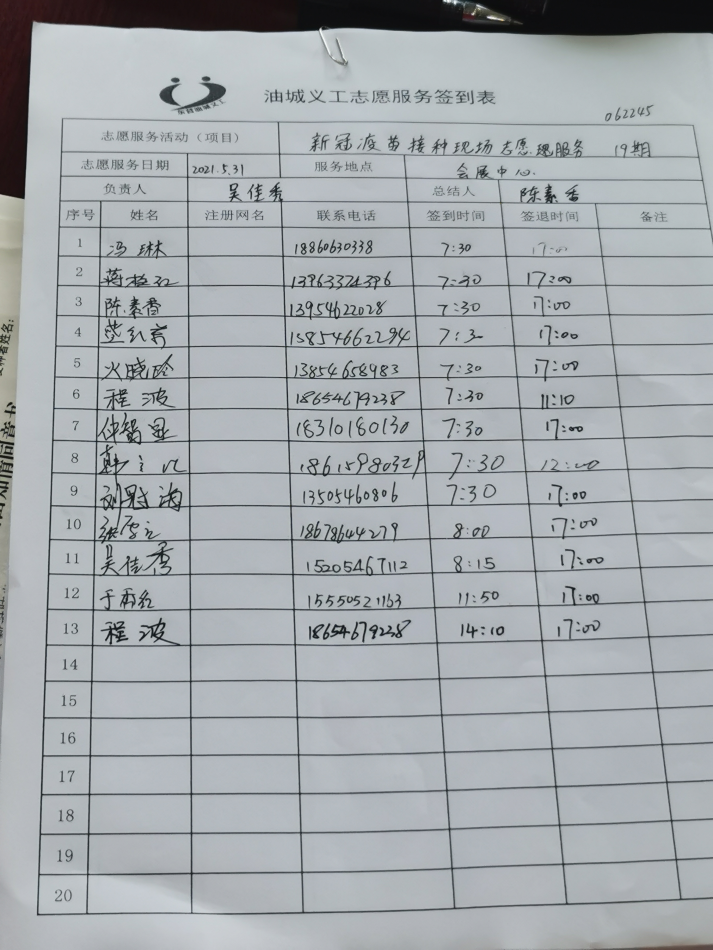 油城义工志愿服务签到表
062245
志愿服务活动（项目） 新冠疫苗接种现场志愿服务 19期
志愿服务日期 2021.5.31 服务地点 会展中心.
负责人 吴佳秀 总结人 陈素香
序号 姓名 注册网名 联系电话 签到时间 签退时间 备注
1 冯琳 18860630338 7:30 17:00
2 13963374396 7:30 17:00
3 陈素香 13954622028 7:30 17:00
4 15854662294 7:30 17:00
5 火晓玲 13854658983 7:30 17:00
6 程波 18654679238 7:30 11:10
7 仲智显 18310180130 7:30 17:00
8 18615980329 7:30 12:00
9 刘冠海 13505460806 7:30 17:00
10 18678644279 8:00 17:00
11 吴佳秀 15205467112 8:15 17:00
12 于雨红 15550521163 11:50 17:00
13 程波 18654679238 14:10 17:00
14
15
16
17
18
19
20